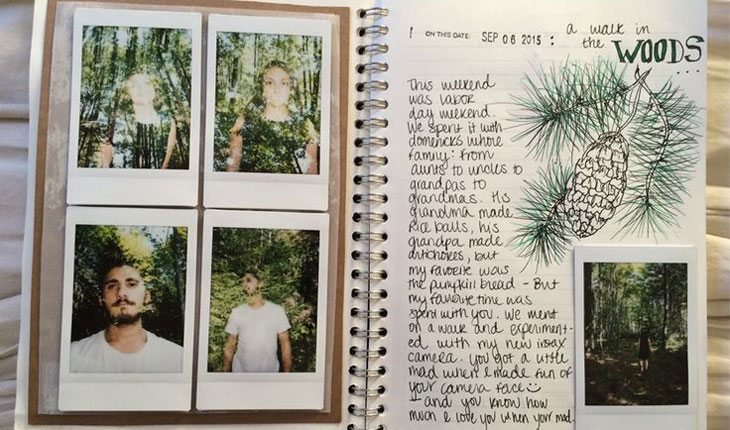 ! ON THIS DATE: SEP 06 2015 :
a walk in
the WOODS...
This weekend
was labor
day weekend.
We spent it with
domenicks whole
family: from
aunts to uncles to
grandpas to
grandmas. His
grandma made
Rice balls, his
grandpa made
artichokes, but
my favorite was
the pumpkin bread - But
my favorite time was
spent with you. We went
on a walk and experiment-
ed with my new instax
camera. you got a little
mad when I made fun of
your camera face
- and you know how
much I love you when your mad.